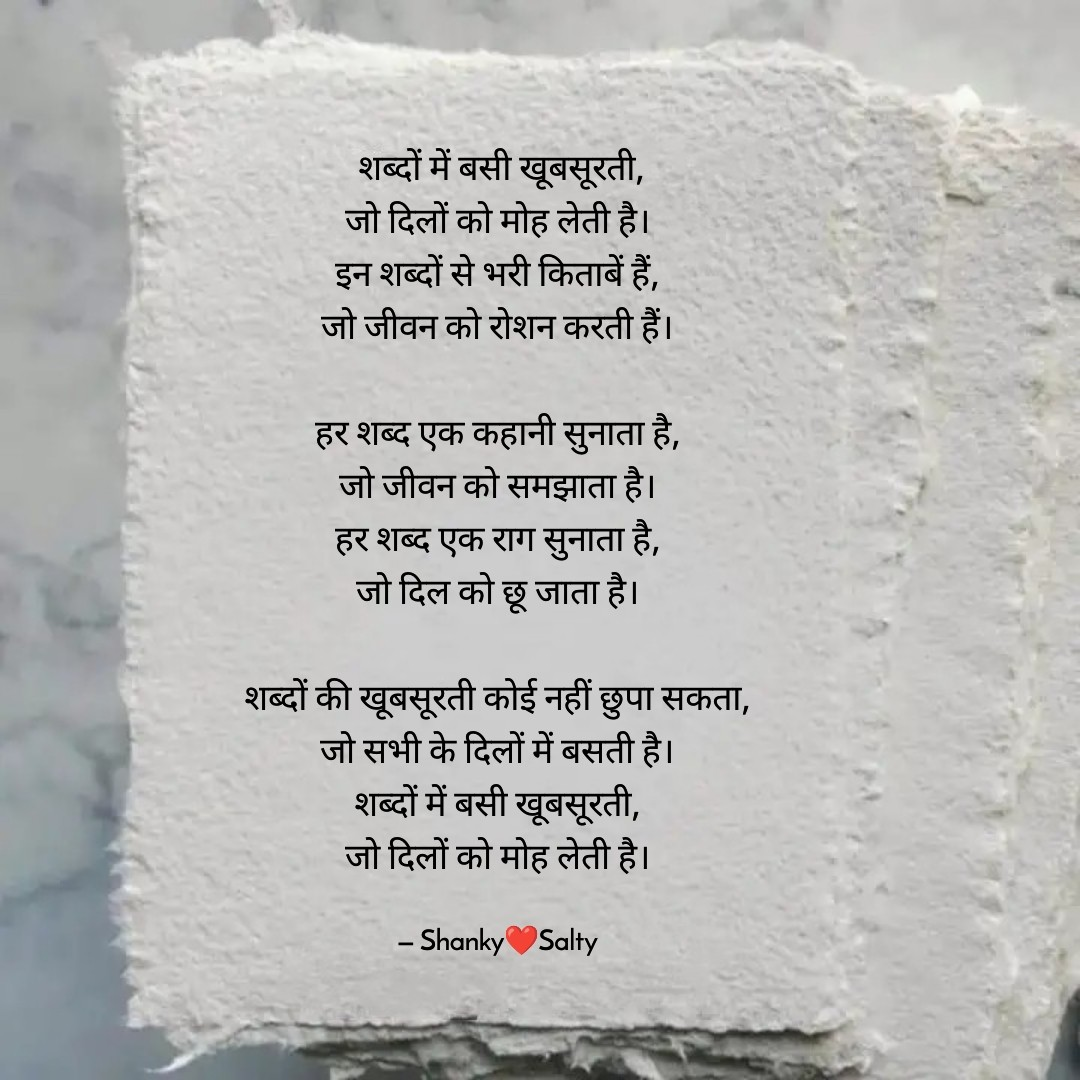 शब्दों में बसी खूबसूरती,
जो दिलों को मोह लेती है।
इन शब्दों से भरी किताबें हैं,
जो जीवन को रोशन करती हैं।
हर शब्द एक कहानी सुनाता है,
जो जीवन को समझाता है।
हर शब्द एक राग सुनाता है,
जो दिल को छू जाता है।
शब्दों की खूबसूरती कोई नहीं छुपा सकता,
जो सभी के दिलों में बसती है।
शब्दों में बसी खूबसूरती,
जो दिलों को मोह लेती है।
– Shanky❤️Salty